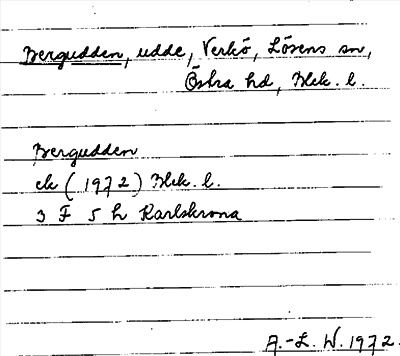 Bergudden, udde, Verkö, Lösens sn,
Östra hd, Blek. l.
Bergudden
ek (1972) Blek. l.
3 F 5 h Karlskrona
A.-L. W. 1972.